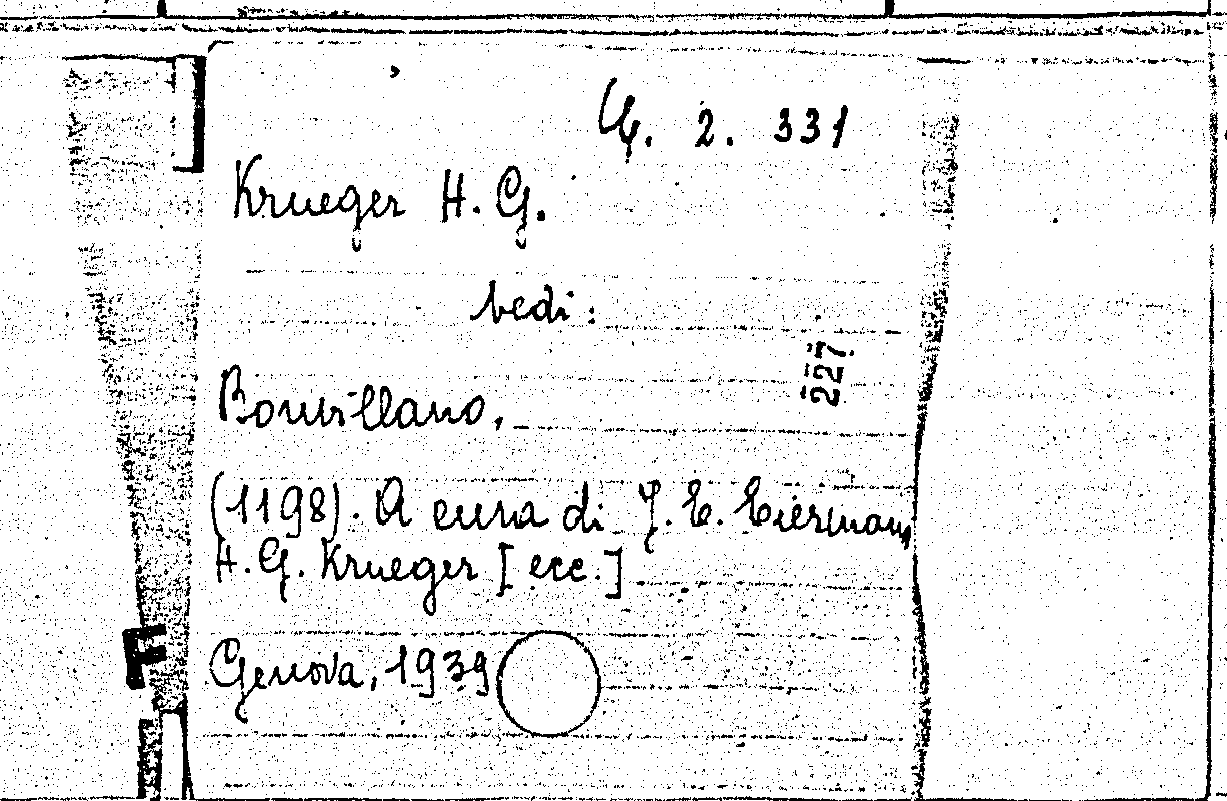 4. 2. 331
Krueger H. G.
vedi:
227
Bonvillano,
(1198). A cura di J. E. Eierman,
H. G. Krueger [ecc.]
Genova, 1939
F